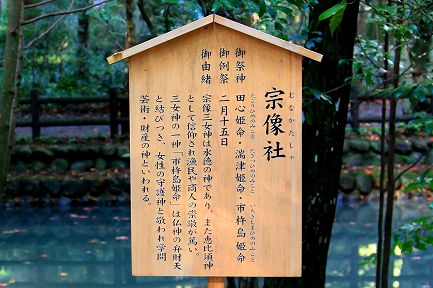 宗像社
むなかたしゃ
御祭神 田心姫命・湍津姫命・市杵島姫命
たごりひめのみこと たぎつひめのみこと いちきしまひめのみこと
御例祭 二月十五日
御由緒 宗像三女神は水徳の神であり、また恵比須神
として信仰され漁民や商人の崇敬が篤い。
三女神の一神「市杵島姫命」は仏神の弁財天
と結びつき、女性の守護神と敬われ学問
芸術・財産の神といわれる。